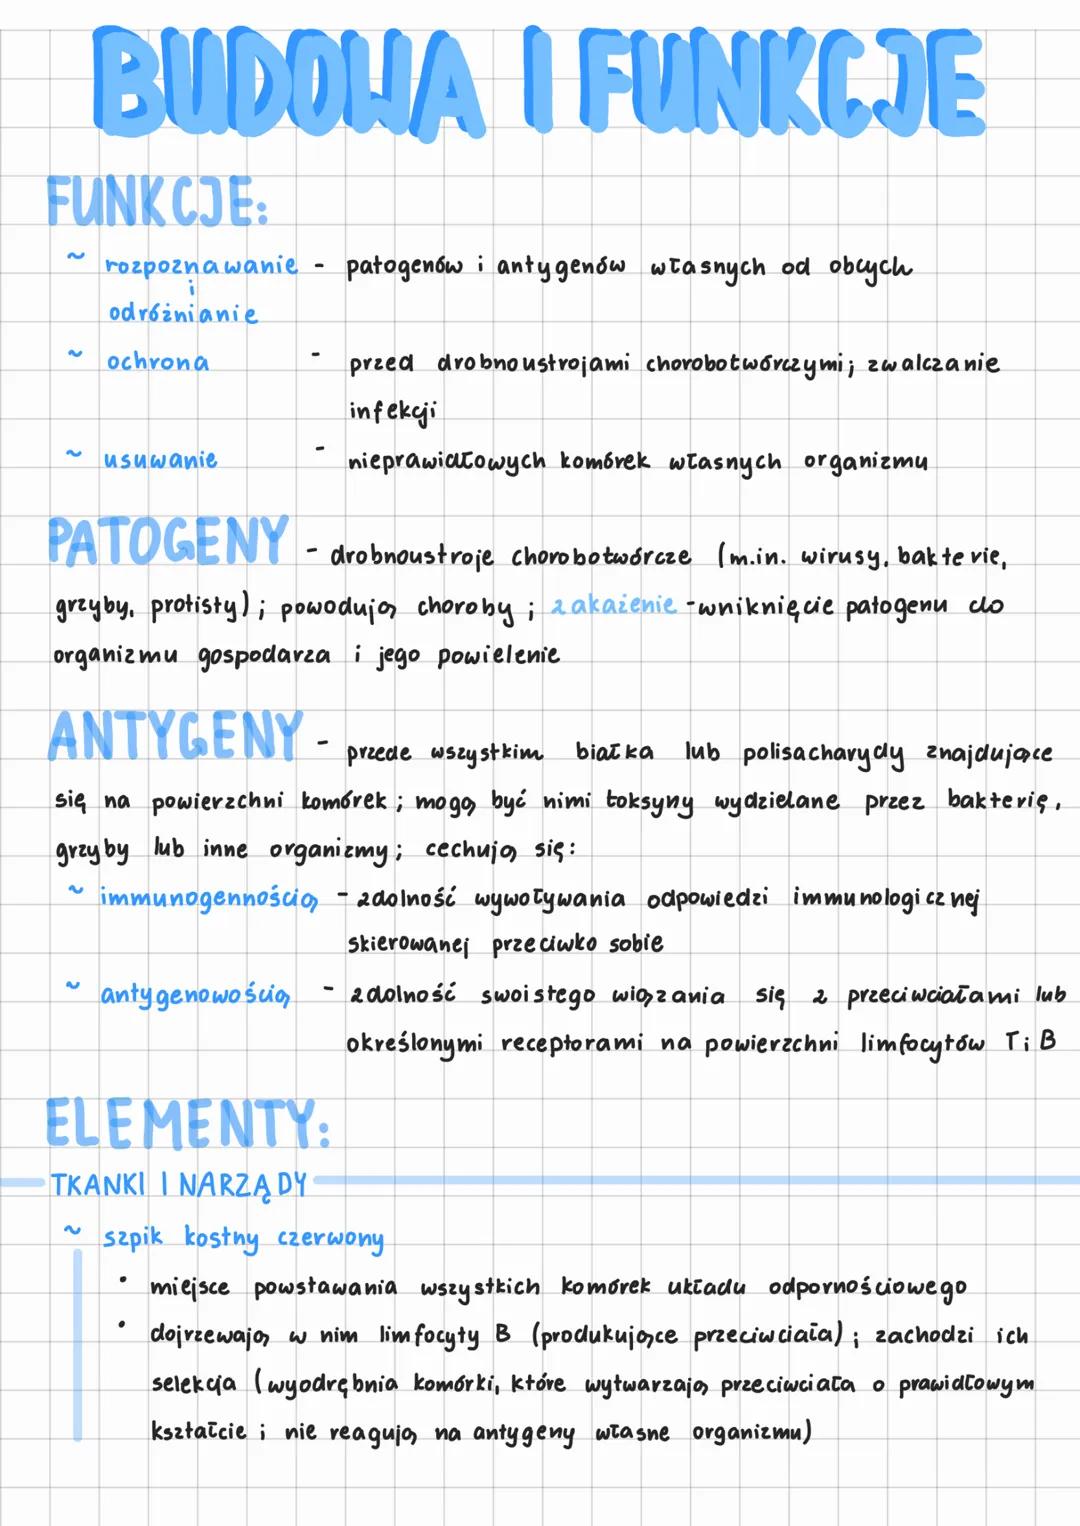 BUDOWA I FUNKCJE
FUNKCJE:
~ rozpoznawanie - patogenów i antygenów własnych od obcych
i
odróżnianie
~ ochrona - przed drobnoustrojami chorobotwórczymi; zwalczanie
infekcji
~ usuwanie - nieprawidłowych komórek własnych organizmu
PATOGENY - drobnoustroje chorobotwórcze (m.in. wirusy, bakterie,
grzyby, protisty); powodują choroby; zakażenie - wniknięcie patogenu do
organizmu gospodarza i jego powielenie
ANTYGENY - przede wszystkim białka lub polisacharydy znajdujące
się na powierzchni komórek; mogą być nimi toksyny wydzielane przez bakterię,
grzyby lub inne organizmy; cechują się:
~ immunogennością - zdolność wywoływania odpowiedzi immunologicznej
skierowanej przeciwko sobie
~ antygenowością - zdolność swoistego wiązania się z przeciwciałami lub
określonymi receptorami na powierzchni limfocytów T i B
ELEMENTY:
TKANKI I NARZĄDY
~ szpik kostny czerwony
• miejsce powstawania wszystkich komórek układu odpornościowego
• dojrzewają w nim limfocyty B (produkujące przeciwciała); zachodzi ich
selekcja (wyodrębnia komórki, które wytwarzają przeciwciała o prawidłowym
kształcie i nie reagują na antygeny własne organizmu)